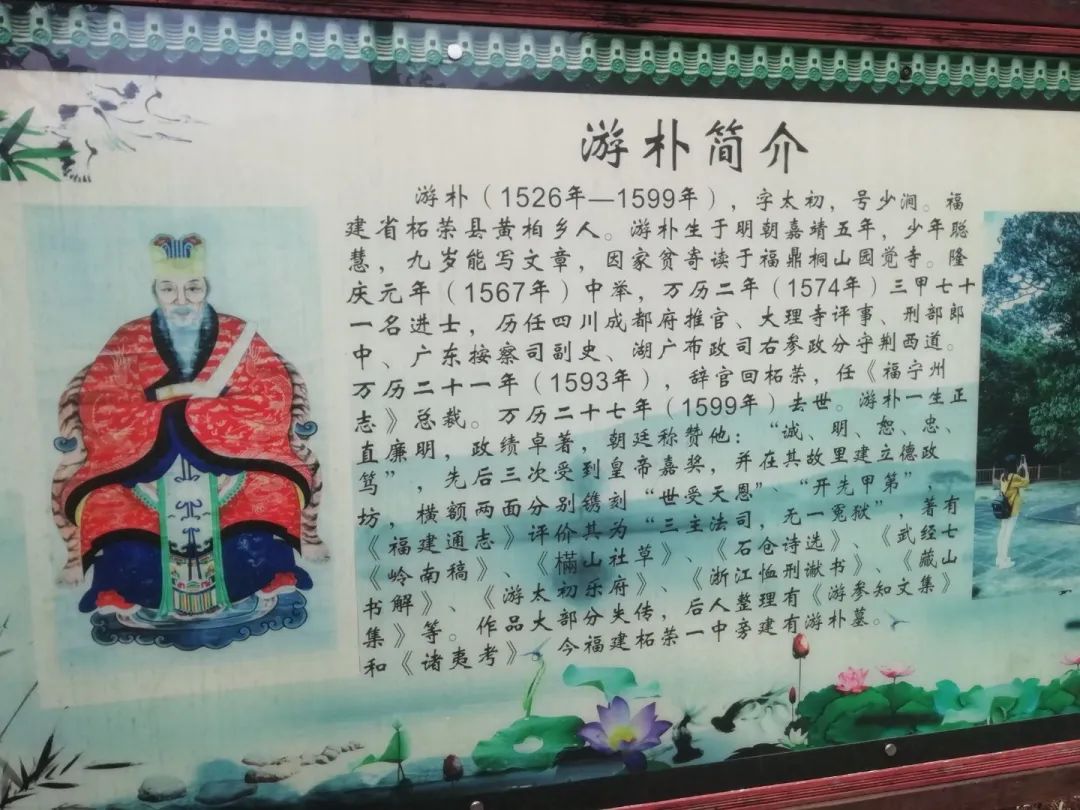 游朴简介
游朴(1526年—1599年),字太初,号少涧。福
建省柘荣县黄柏乡人。游朴生于明朝嘉靖五年,少年聪
慧,九岁能写文章,因家贫寄读于福鼎桐山园觉寺。隆
庆元年(1567年)中举,万历二年(1574年)三甲七十
一名进士,历任四川成都府推官、大理寺评事、刑部郎
中、广东按察司副史、湖广布政司右参政分守荆西道。
万历二十一年(1593年),辞官回柘荣,任《福宁州
志》总裁。万历二十七年(1599年)去世。游朴一生正
直廉明,政绩卓著,朝廷称赞他:“诚、明、恕、忠、
笃”,先后三次受到皇帝嘉奖,并在其故里建立德政
坊,横额两面分别镌刻“世受天恩”、“开先甲第”,
《福建通志》评价其为“三主法司,无一冤狱”,著有
《岭南稿》、《樠山社草》、《石仓诗选》、《武经七
书解》、《游太初乐府》、《浙江恤刑谳书》、《藏山
集》等。作品大部分失传,后人整理有《游参知文集》
和《诸夷考》。今福建柘荣一中旁建有游朴墓。